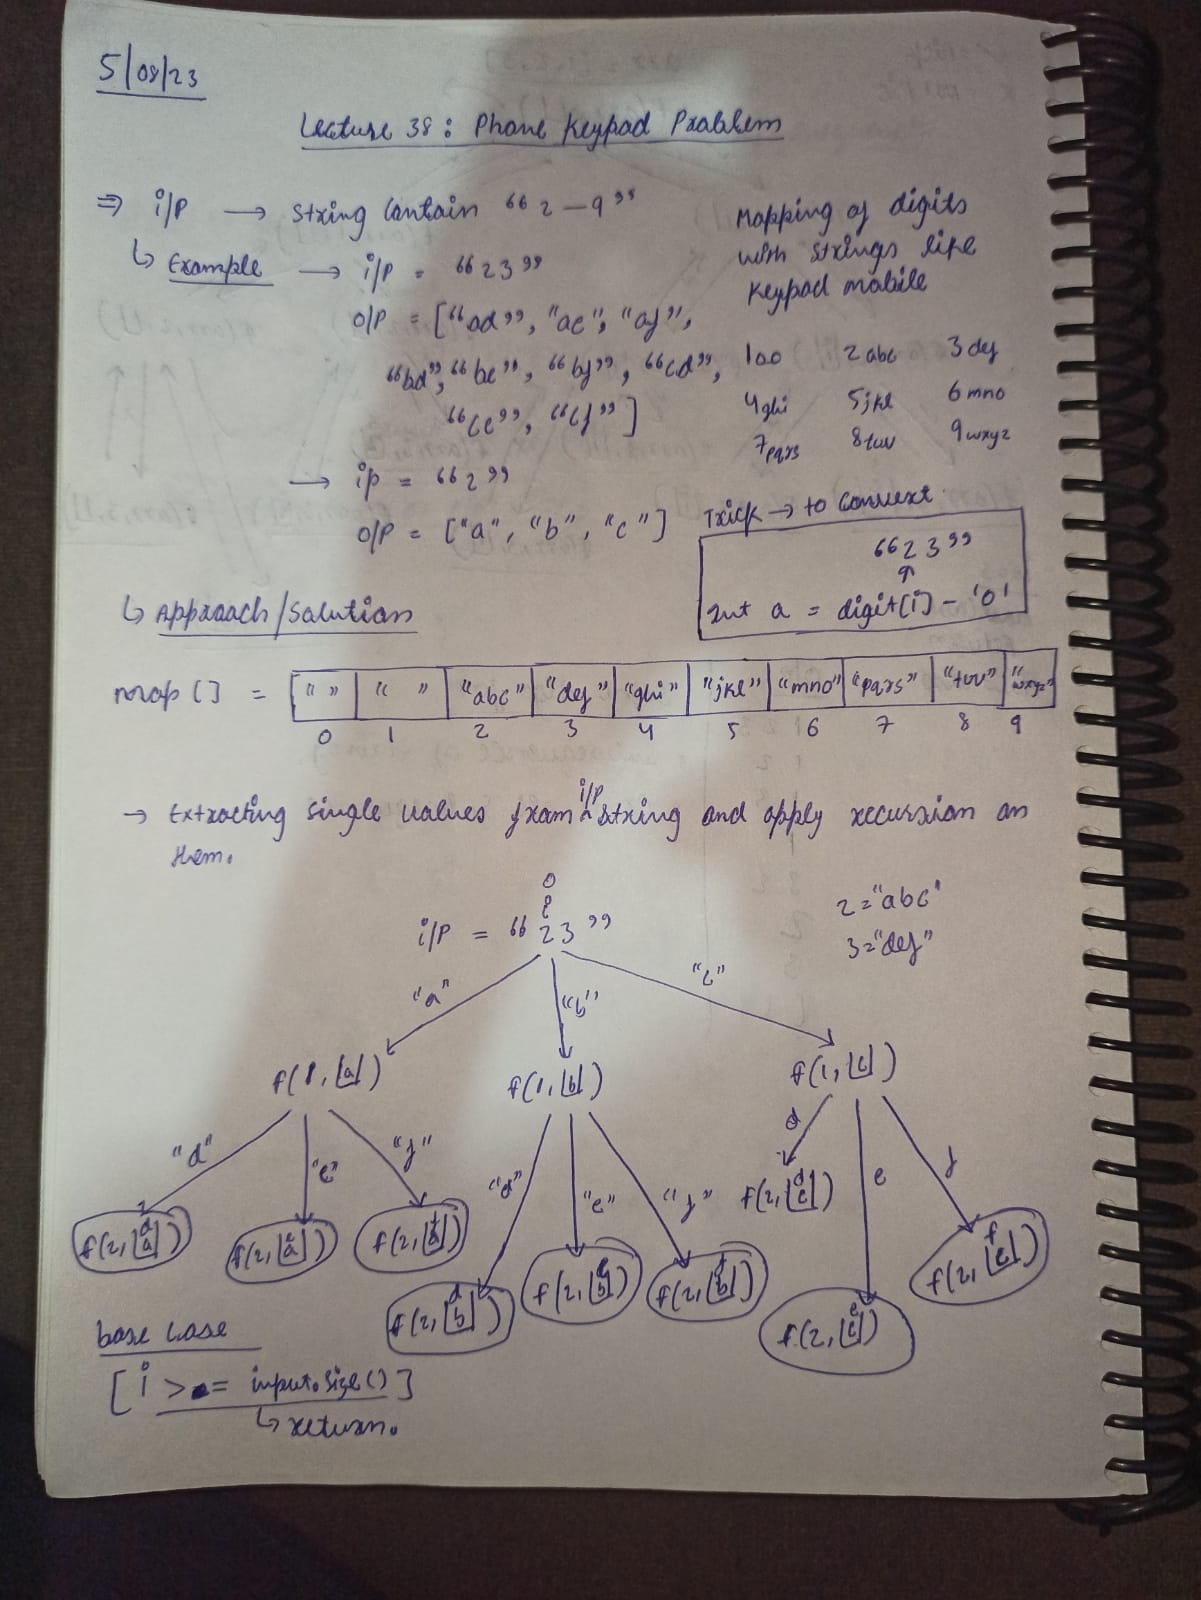 5/08/23
Lecture 38: Phone Keypad Problem
⇒ i/p → string contain "2-9"
↳ Example → i/p = "23"
o/p = ["ad", "ae", "af",
"bd", "be", "bf", "cd",
"ce", "cf"]
→ ip = "2"
o/p = ["a", "b", "c"]
Mapping of digits
with strings like
keypad mobile
1oo 2abc 3def
4ghi 5jkl 6mno
7pqrs 8tuv 9wxyz
Trick → to convert
"23"
↑
int a = digit[i] - '0'
↳ Approach/Solution
map[] = " " " " "abc" "def" "ghi" "jkl" "mno" "pqrs" "tuv" "wxyz"
0 1 2 3 4 5 6 7 8 9
→ Extracting single values from i/p string and apply recursion on
them.
0
i
i/p = "23"
2="abc"
3="def"
"a" "b" "c"
f(1, [a]) f(1, [b]) f(1, [c])
"d" "e" "f" "d" "e" "f" d e f
f(2, [d a]) f(2, [e a]) f(2, [f a]) f(2, [d b]) f(2, [e b]) f(2, [f b]) f(2, [d c]) f(2, [e c]) f(2, [f c])
base case
[i >= input.size()]
↳ return.